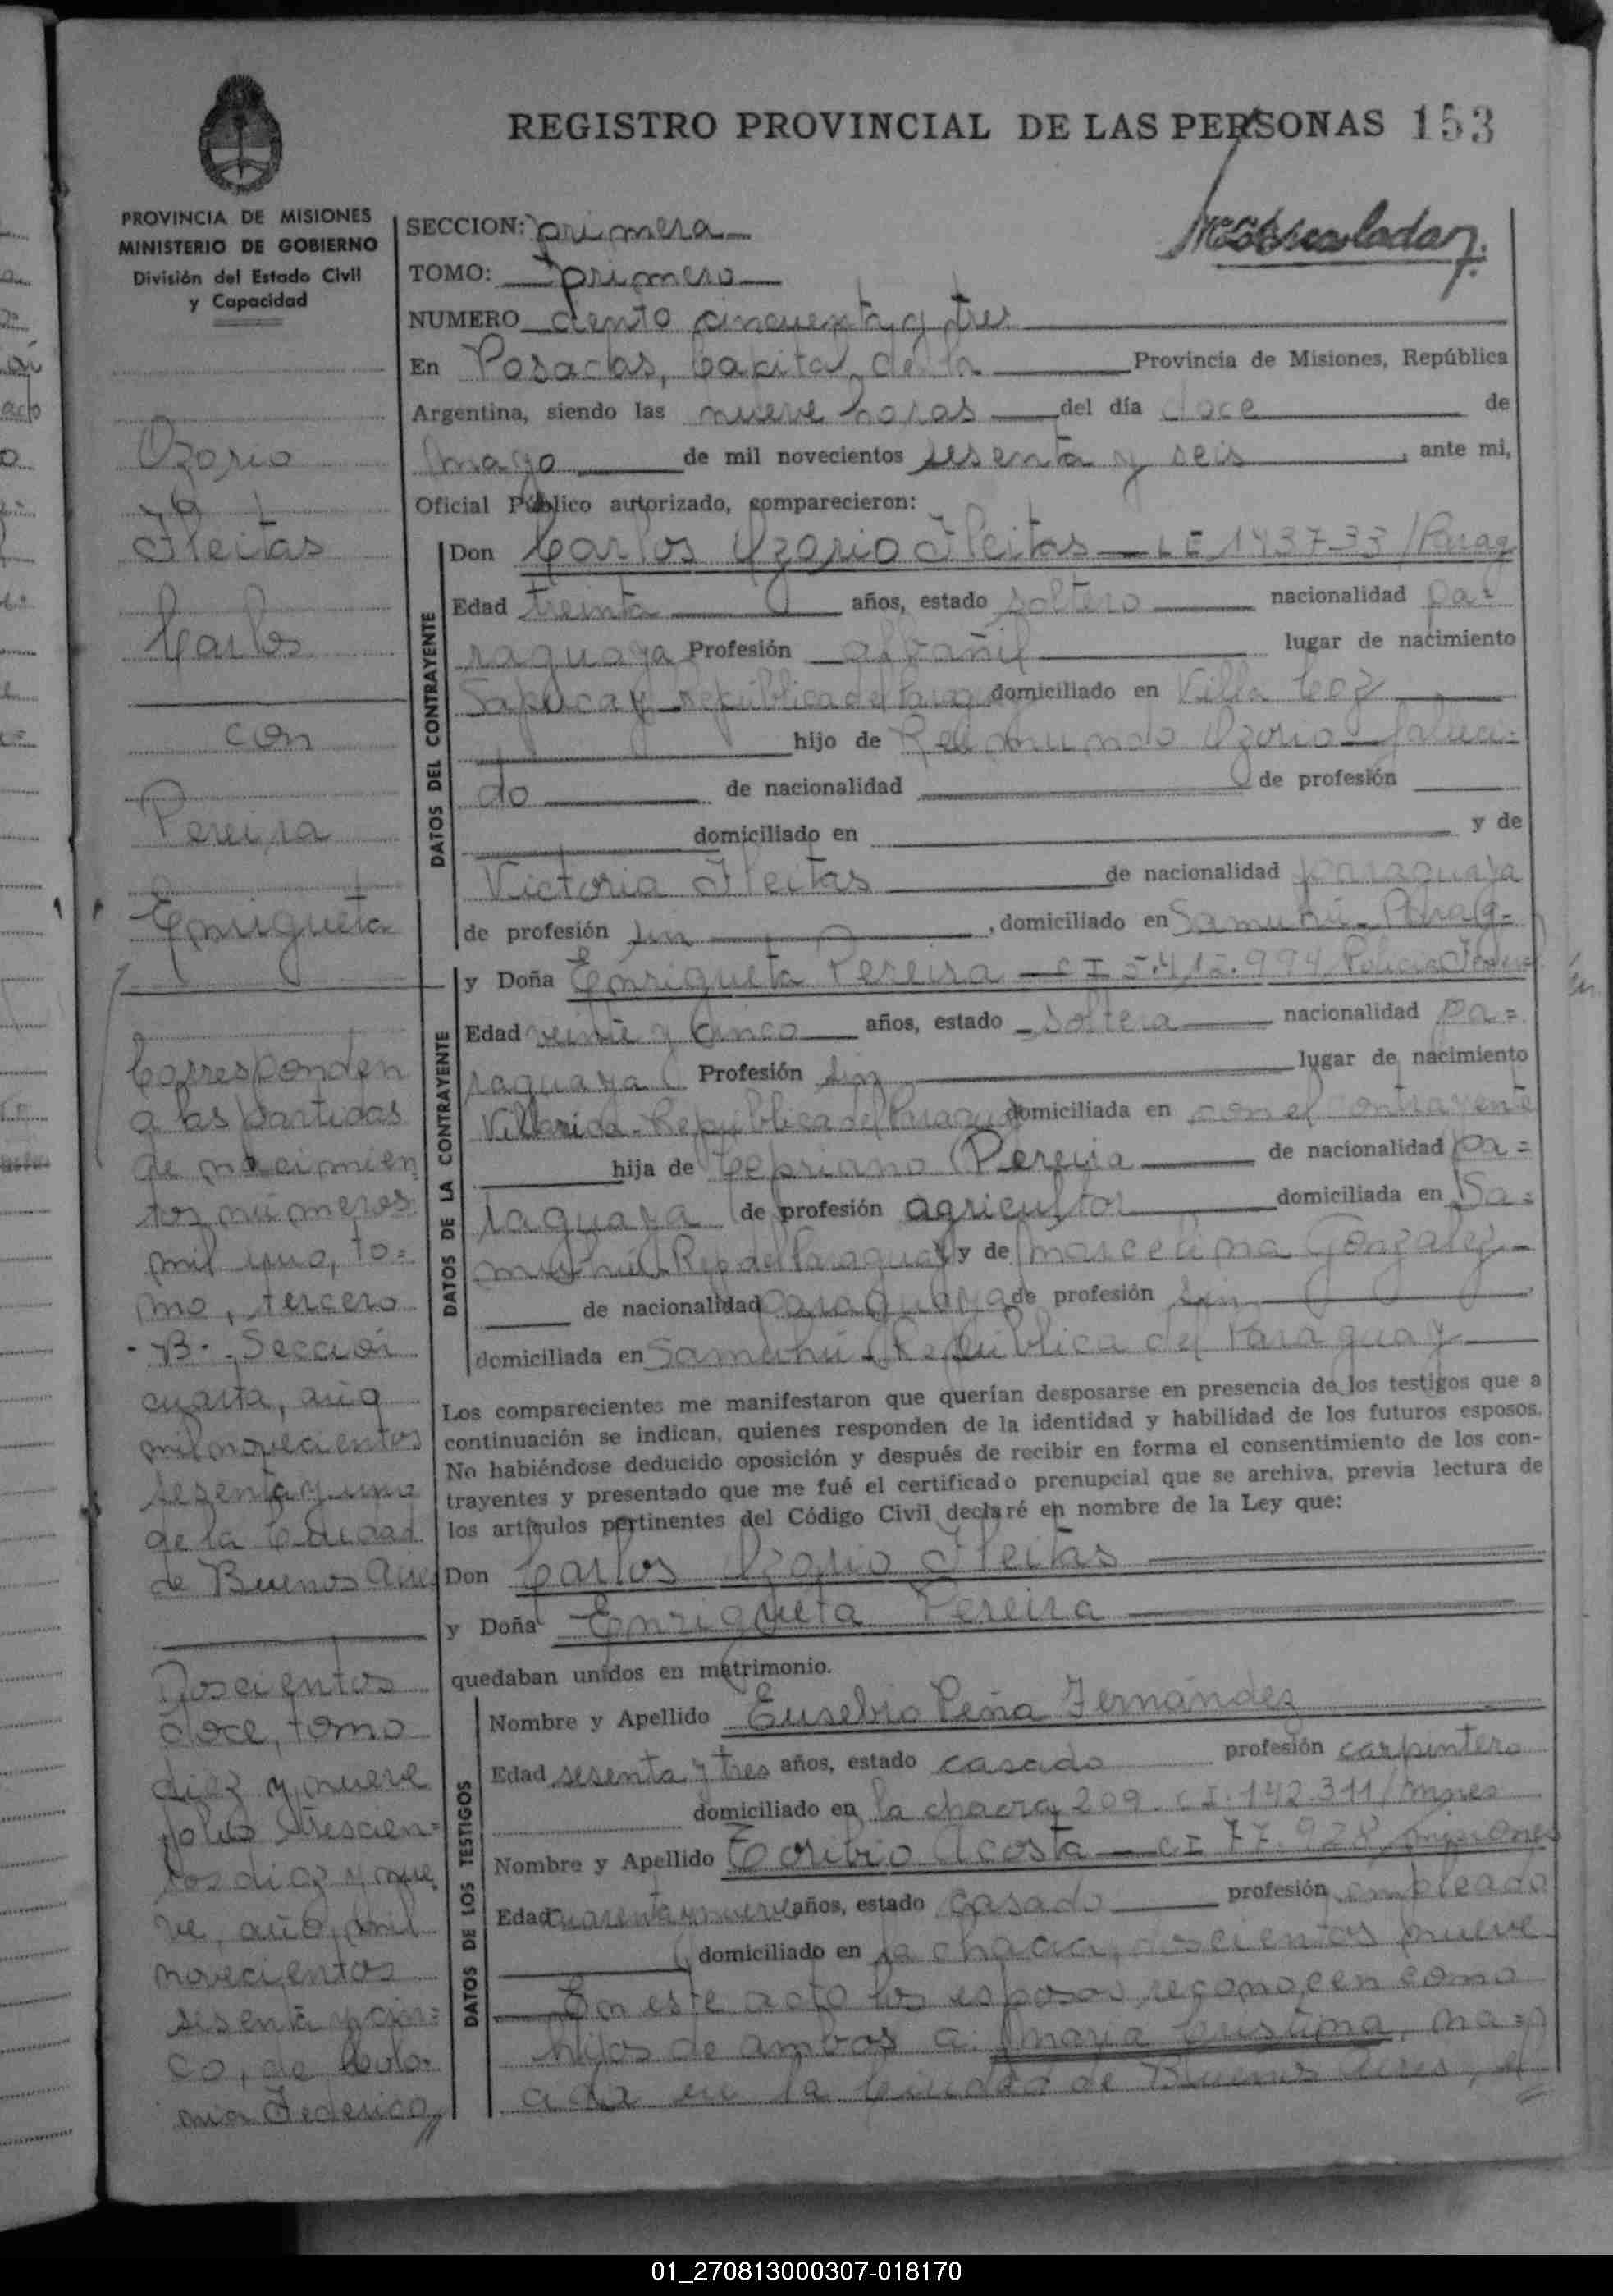 REGISTRO PROVINCIAL DE LAS PERSONAS 153
PROVINCIA DE MISIONES
MINISTERIO DE GOBIERNO
División del Estado Civil
y Capacidad
Ozorio
y
Fleitas
Carlos
con
Pereira
Enriqueta
Corresponden
a las partidas
de nacimien
tos números
mil uno, to=
mo, tercero
-B-, Sección
cuarta, año
mil novecientos
sesenta y uno
de la Ciudad
de Buenos Aires
Doscientos
doce, tomo
diez y nueve
folio trescien=
tos diez y nue
ve, año, mil
novecientos
sesenta y cin=
co, de Colo=
nia Federico
SECCION: primera
TOMO: primero
NUMERO ciento cincuenta y tres
En Posadas, Capital de la Provincia de Misiones, República
Argentina, siendo las nueve horas del día doce de
mayo de mil novecientos sesenta y seis, ante mi,
Oficial Público autorizado, comparecieron:
DATOS DEL CONTRAYENTE
Don Carlos Ozorio Fleitas - 143733/Parag
Edad treinta años, estado soltero nacionalidad pa=
raguaya Profesión albañil lugar de nacimiento
Sapucay República del Parag domiciliado en Villa Coz
hijo de Reimundo Ozorio - falleci=
do de nacionalidad de profesión
domiciliado en y de
Victoria Fleitas de nacionalidad paraguaya
de profesión sin, domiciliado en Samuhú - Parag-
DATOS DE LA CONTRAYENTE
y Doña Enriqueta Pereira - C I 5.412.994/Policia Federal
Edad veinte y cinco años, estado soltera nacionalidad pa=
raguaya Profesión sin lugar de nacimiento
Villarica - República del Paraguay domiciliada en con el contrayente
hija de Cepriano Pereira de nacionalidad pa=
raguaya de profesión agricultor domiciliada en Sa=
muhú Rep del Paraguay y de Marcelina Gonzalez -
de nacionalidad paraguaya de profesión sin
domiciliada en Samuhú - República del Paraguay
Los comparecientes me manifestaron que querían desposarse en presencia de los testigos que a
continuación se indican, quienes responden de la identidad y habilidad de los futuros esposos.
No habiéndose deducido oposición y después de recibir en forma el consentimiento de los con-
trayentes y presentado que me fué el certificado prenupcial que se archiva, previa lectura de
los artículos pertinentes del Código Civil declaré en nombre de la Ley que:
Don Carlos Ozorio Fleitas
y Doña Enriqueta Pereira
quedaban unidos en matrimonio.
DATOS DE LOS TESTIGOS
Nombre y Apellido Eusebio Peña Fernández
Edad sesenta y tres años, estado casado profesión carpintero
domiciliado en la chacra 209. C.I. 142.311/Mnes
Nombre y Apellido Toribio Acosta - C I 77.928/Misiones
Edad cuarenta y nueve años, estado casado profesión empleado
domiciliado en la chacra, doscientos nueve
En este acto los esposos reconocen como
hijos de ambos a: María Cristina, na=
cida en la Ciudad de Buenos Aires, el
01_270813000307-018170